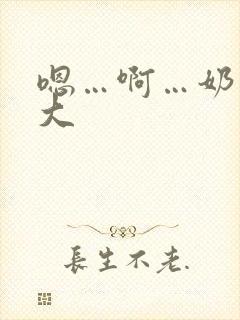 嗯…啊…奶
大
長生不老.